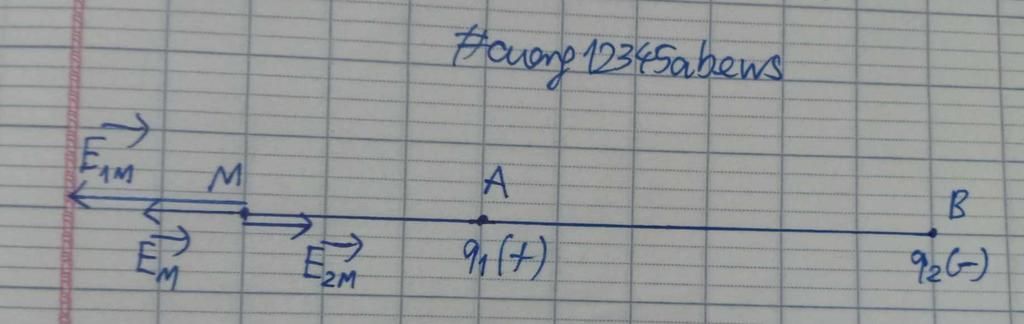 #cuong12345abews
E₁M
M
A
B
E_M
E₂M
q₁(+)
q₂(-)